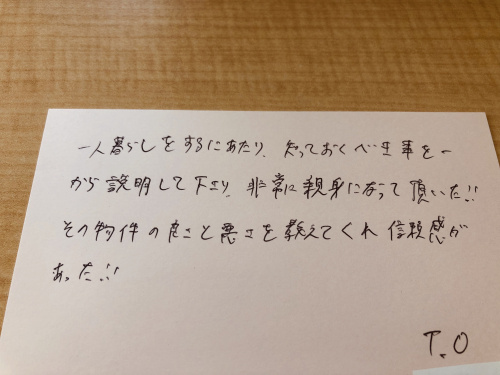 一人暮らしをするにあたり、知っておくべき事を一
から説明して下さり、非常に親身になって頂いた!!
その物件の良さと悪さを教えてくれ信頼感が
あった!!
T.O